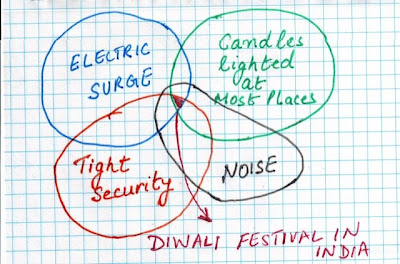 ELECTRIC
SURGE
Candles
lighted
at
Most Places
Tight
Security
NOISE
DIWALI FESTIVAL IN
INDIA